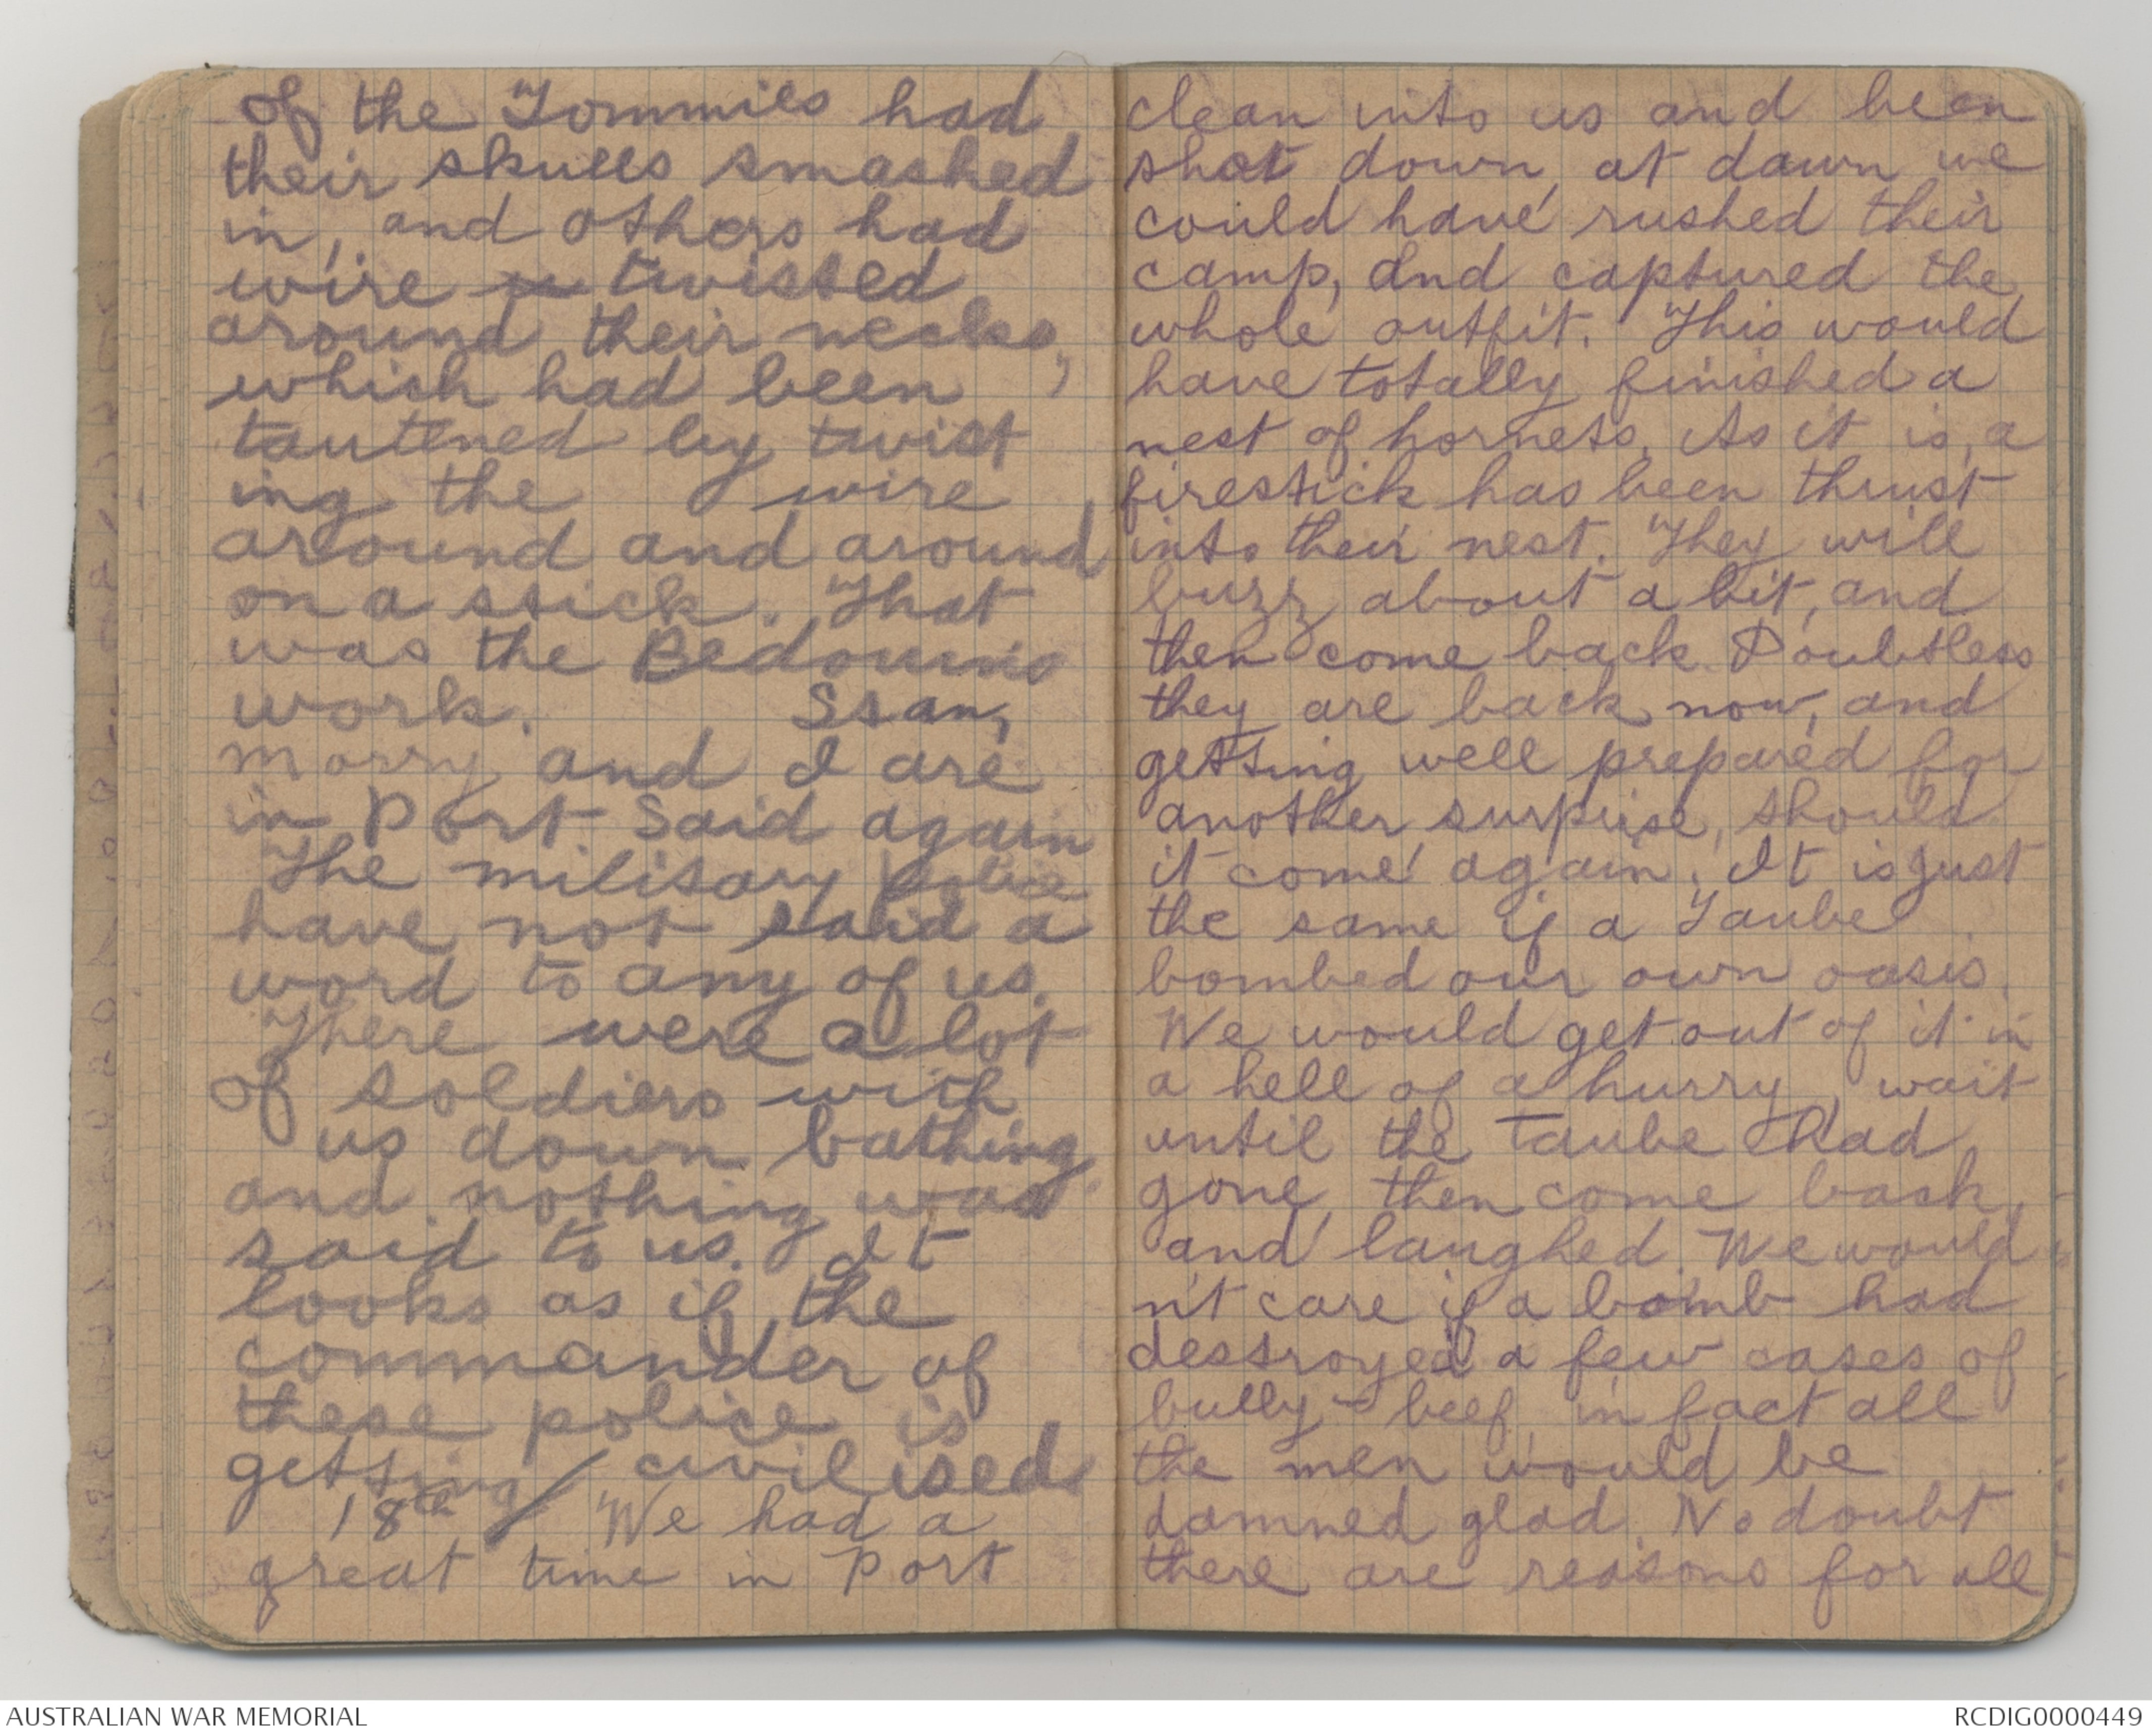 of the Tommies had
their skulls smashed
in, and others had
wire twisted
around their necks,
which had been
tautened by twist
ing the wire
around and around
on a stick. That
was the Bedouins
work. Stan,
morry and I are
in Port Said again
The military police
have not said a
word to any of us.
There were a lot
of soldiers with
us down bathing
and nothing was
said to us. It
looks as if the
commander of
these police is
getting civilised
18th / We had a
great time in Port
clean into us and been
shot down, at dawn we
could have rushed their
camp, and captured the
whole outfit. This would
have totally finished a
nest of hornets. As it is, a
firestick has been thrust
into their nest. They will
buzz about a bit, and
then come back. Doubtless
they are back now, and
getting well prepared for
another surprise, should
it come again. It is just
the same if a Taube
bombed our own oasis.
We would get out of it in
a hell of a hurry, wait
until the Taube had
gone, then come back
and laughed. We would
n't care if a bomb had
destroyed a few cases of
bully-beef, in fact all
the men would be
damned glad. No doubt
there are reasons for all
AUSTRALIAN WAR MEMORIAL
RCDIG0000449